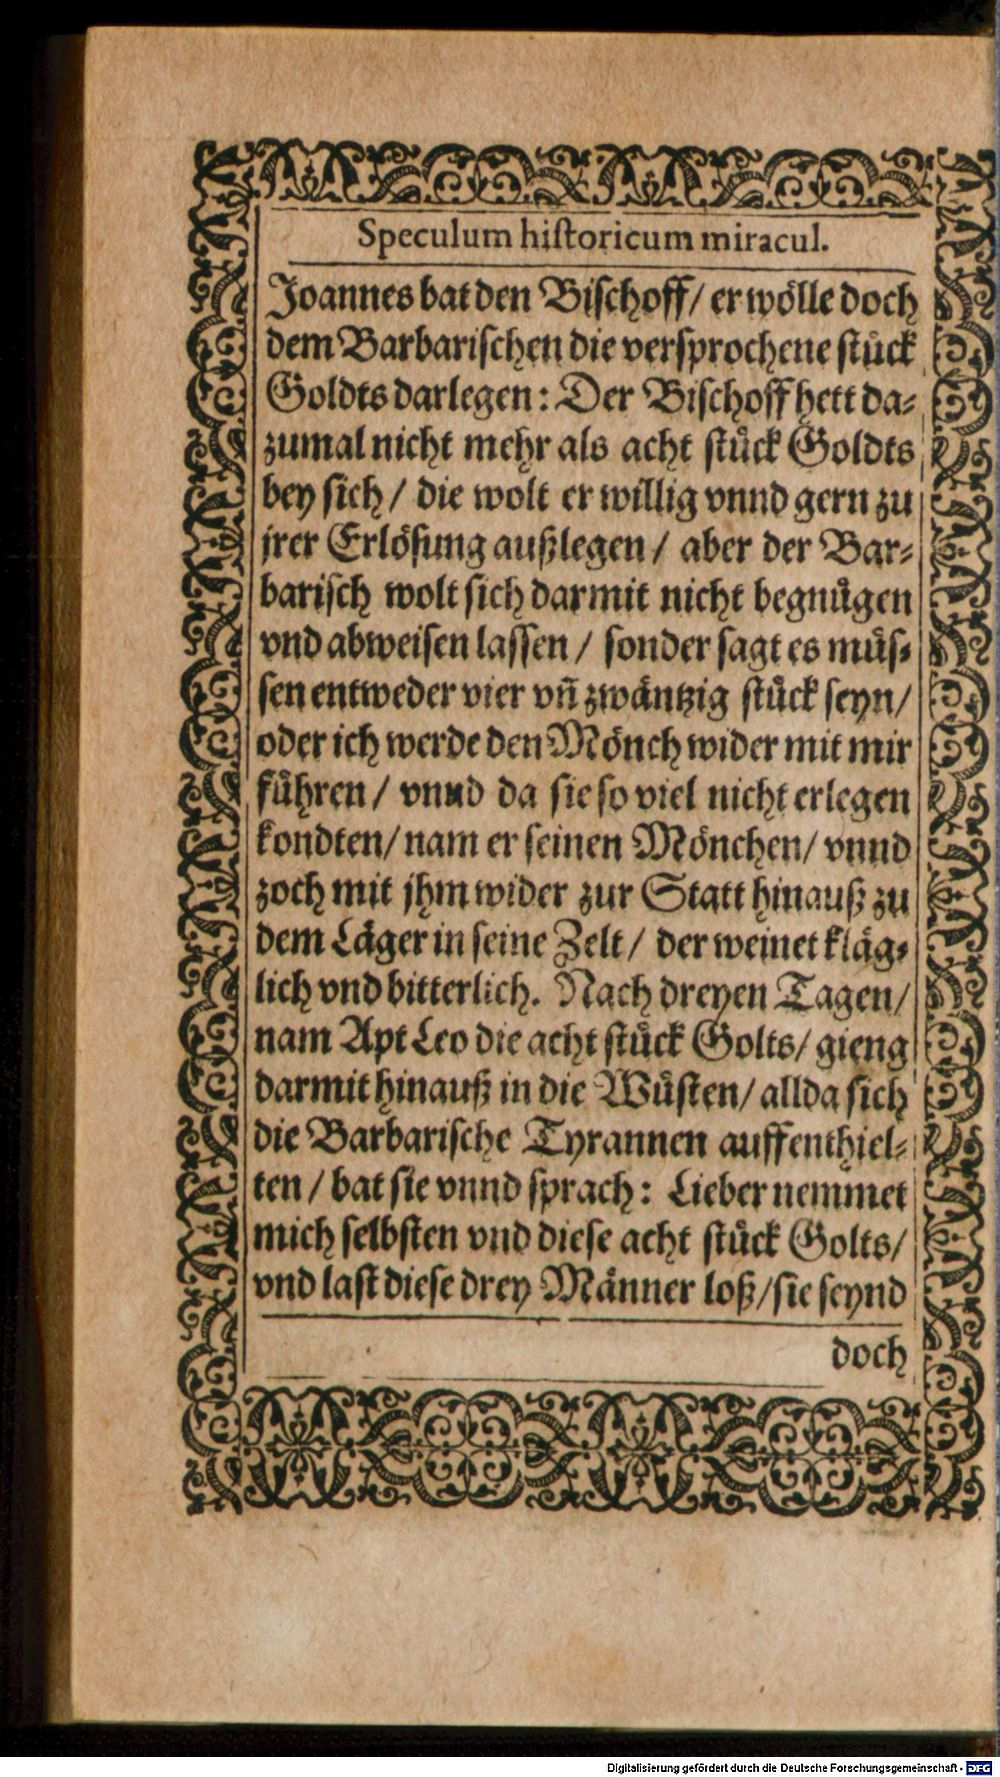 Speculum historicum miracul.
Joannes bat den Bischoff/ er wölle doch
dem Barbarischen die versprochene stück
Goldts darlegen: Der Bischoff hett da-
zumal nicht mehr als acht stück Goldts
bey sich/ die wolt er willig vnnd gern zu
jrer Erlösung außlegen/ aber der Bar-
barisch wolt sich darmit nicht begnügen
vnd abweisen lassen/ sonder sagt es müs-
sen entweder vier vñ zwäntzig stück seyn/
oder ich werde den Mönch wider mit mir
führen/ vnnd da sie so viel nicht erlegen
kondten/ nam er seinen Mönchen/ vnnd
zoch mit jhm wider zur Statt hinauß zu
dem Läger in seine Zelt/ der weinet kläg-
lich vnd bitterlich. Nach dreyen Tagen/
nam Apt Leo die acht stück Golts/ gieng
darmit hinauß in die Wüsten/ allda sich
die Barbarische Tyrannen auffenthiel-
ten/ bat sie vnnd sprach: Lieber nemmet
mich selbsten vnd diese acht stück Golts/
vnd last diese drey Männer loß/ sie seynd
doch
Digitalisierung gefördert durch die Deutsche Forschungsgemeinschaft - DFG